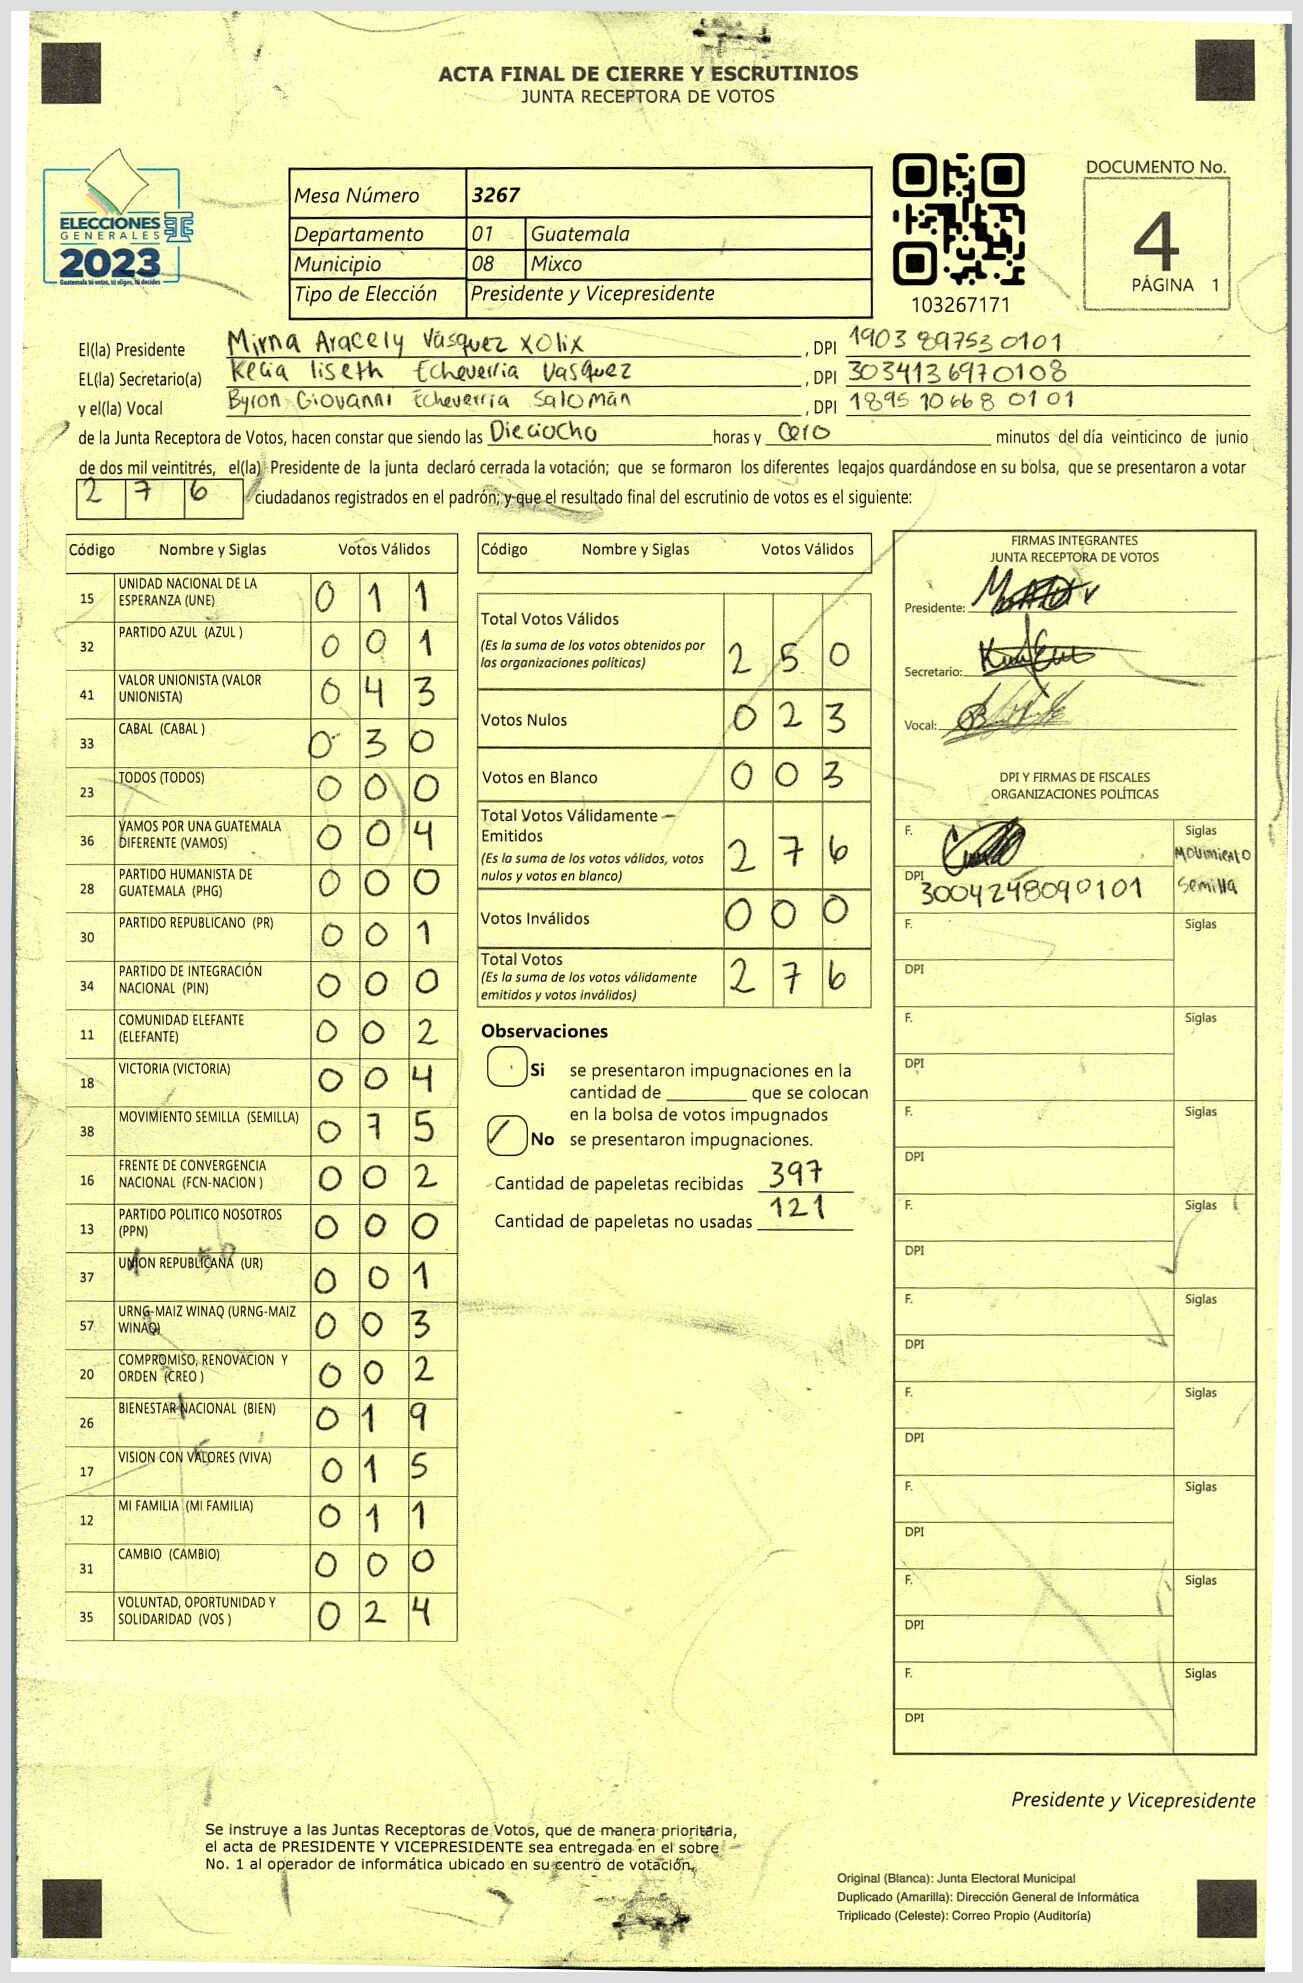 ACTA FINAL DE CIERRE Y ESCRUTINIOS
JUNTA RECEPTORA DE VOTOS
ELECCIONES
GENERALES
2023
Guatemala tú votas, tú eliges, tú decides
Mesa Número 3267
Departamento 01 Guatemala
Municipio 08 Mixco
Tipo de Elección Presidente y Vicepresidente
103267171
DOCUMENTO No.
4
PÁGINA 1
El(la) Presidente Mirna Aracely Vásquez Xolix , DPI 1903 89753 0101
EL(la) Secretario(a) Kelia liseth Echeverria Vasquez , DPI 3034136970108
y el(la) Vocal Byron Giovanni Echeverria Salomán , DPI 1895 10668 0101
de la Junta Receptora de Votos, hacen constar que siendo las Dieciocho horas y Cero minutos del día veinticinco de junio
de dos mil veintitrés, el(la) Presidente de la junta declaró cerrada la votación; que se formaron los diferentes legajos guardándose en su bolsa, que se presentaron a votar
276 ciudadanos registrados en el padrón; y que el resultado final del escrutinio de votos es el siguiente:
Código Nombre y Siglas Votos Válidos
15 UNIDAD NACIONAL DE LA ESPERANZA (UNE) 0 1 1
32 PARTIDO AZUL (AZUL ) 0 0 1
41 VALOR UNIONISTA (VALOR UNIONISTA) 0 4 3
33 CABAL (CABAL ) 0 3 0
23 TODOS (TODOS) 0 0 0
36 VAMOS POR UNA GUATEMALA DIFERENTE (VAMOS) 0 0 4
28 PARTIDO HUMANISTA DE GUATEMALA (PHG) 0 0 0
30 PARTIDO REPUBLICANO (PR) 0 0 1
34 PARTIDO DE INTEGRACIÓN NACIONAL (PIN) 0 0 0
11 COMUNIDAD ELEFANTE (ELEFANTE) 0 0 2
18 VICTORIA (VICTORIA) 0 0 4
38 MOVIMIENTO SEMILLA (SEMILLA) 0 7 5
16 FRENTE DE CONVERGENCIA NACIONAL (FCN-NACION ) 0 0 2
13 PARTIDO POLITICO NOSOTROS (PPN) 0 0 0
37 UNION REPUBLICANA (UR) 0 0 1
57 URNG-MAIZ WINAQ (URNG-MAIZ WINAQ) 0 0 3
20 COMPROMISO, RENOVACION Y ORDEN (CREO ) 0 0 2
26 BIENESTAR NACIONAL (BIEN) 0 1 9
17 VISION CON VALORES (VIVA) 0 1 5
12 MI FAMILIA (MI FAMILIA) 0 1 1
31 CAMBIO (CAMBIO) 0 0 0
35 VOLUNTAD, OPORTUNIDAD Y SOLIDARIDAD (VOS ) 0 2 4
Código Nombre y Siglas Votos Válidos
Total Votos Válidos
(Es la suma de los votos obtenidos por
las organizaciones políticas) 2 5 0
Votos Nulos 0 2 3
Votos en Blanco 0 0 3
Total Votos Válidamente
Emitidos
(Es la suma de los votos válidos, votos
nulos y votos en blanco) 2 7 6
Votos Inválidos 0 0 0
Total Votos
(Es la suma de los votos válidamente
emitidos y votos inválidos) 2 7 6
Observaciones
Si se presentaron impugnaciones en la
cantidad de ________ que se colocan
en la bolsa de votos impugnados
No se presentaron impugnaciones.
Cantidad de papeletas recibidas 397
Cantidad de papeletas no usadas 121
FIRMAS INTEGRANTES
JUNTA RECEPTORA DE VOTOS
Presidente:
Secretario:
Vocal:
DPI Y FIRMAS DE FISCALES
ORGANIZACIONES POLÍTICAS
F. Siglas
Movimiento
DPI 3004248090101 Semilla
F. Siglas
DPI
F. Siglas
DPI
F. Siglas
DPI
F. Siglas
DPI
F. Siglas
DPI
F. Siglas
DPI
F. Siglas
DPI
F. Siglas
DPI
F. Siglas
DPI
Presidente y Vicepresidente
Se instruye a las Juntas Receptoras de Votos, que de manera prioritaria,
el acta de PRESIDENTE Y VICEPRESIDENTE sea entregada en el sobre
No. 1 al operador de informática ubicado en su centro de votación.
Original (Blanca): Junta Electoral Municipal
Duplicado (Amarilla): Dirección General de Informática
Triplicado (Celeste): Correo Propio (Auditoría)